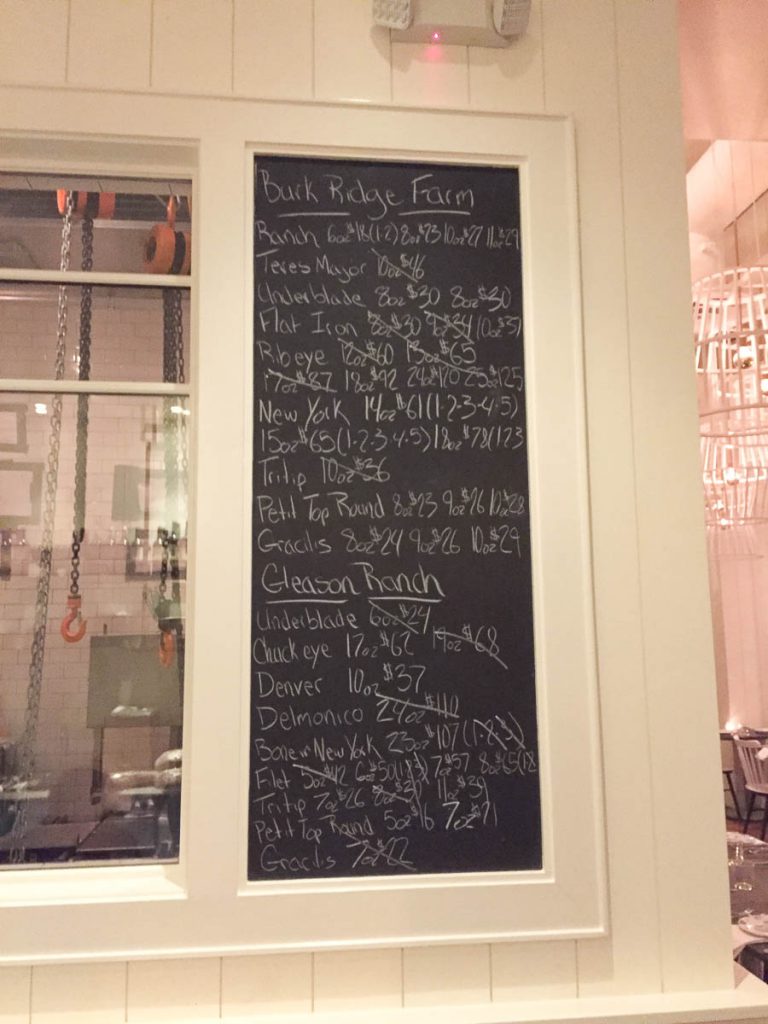 Buck Ridge Farm
Ranch 6oz $18(1-2) 8oz $23 10oz $27 11oz $29
Teres Mayor 10oz $46
Underblade 8oz $30 8oz $30
Flat Iron 8oz $30 9oz $34 10oz $37
Ribeye 12oz $60 13oz $65
17oz $87 18oz $92 24oz $120 25oz $125
New York 14oz $61(1-2-3-4-5)
15oz $65(1-2-3-4-5) 18oz $78(123
Tritip 10oz $36
Petit Top Round 8oz $23 9oz $26 10oz $28
Gracilis 8oz $24 9oz $26 10oz $29
Gleason Ranch
Underblade 6oz $24
Chuck eye 17oz $62 19oz $68
Denver 10oz $37
Delmonico 24oz $110
Bone in New York 23oz $107
Filet 5oz $42 6oz $50 7oz $57 8oz $65
Tritip 7oz $26 8oz 11oz $39
Petit Top Round 5oz $16 7oz $21
Gracilis 7oz $22